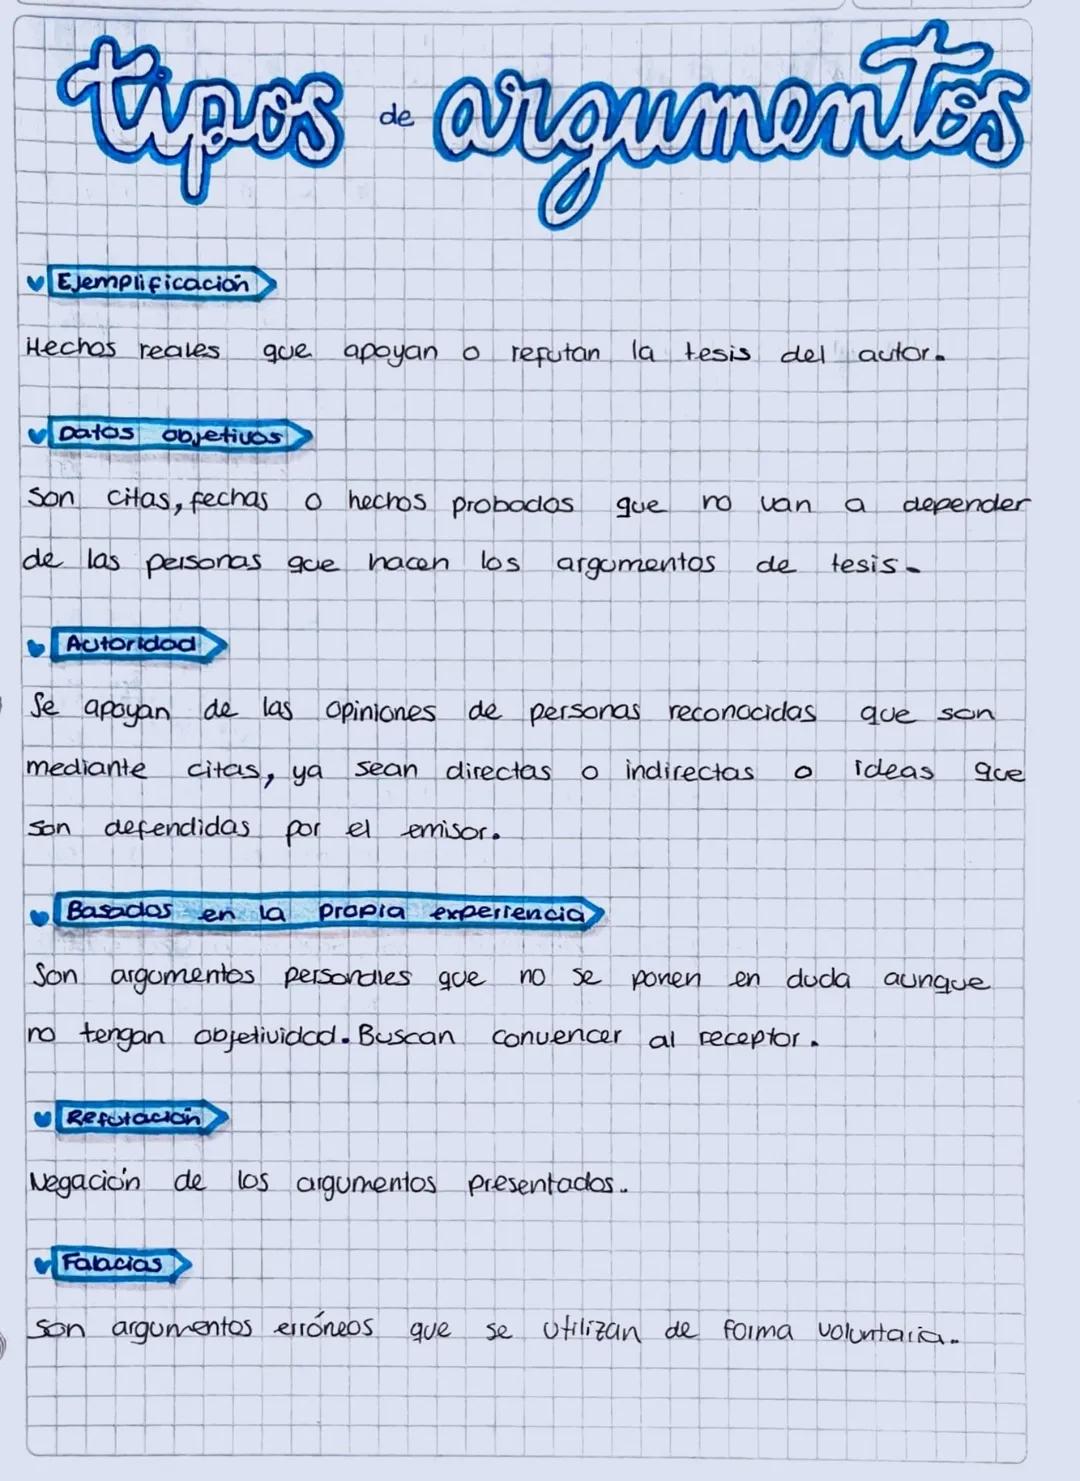 tipos de argumentos
Ejemplificación
Hechos reales que apoyan o refutan la tesis del autor.
Datos objetivos
Son citas, fechas o hechos probados que no van a depender
de las personas que hacen los argumentos de tesis.
Autoridad
Se apoyan de las opiniones de personas reconocidas que son
mediante citas, ya sean directas o indirectas o ideas que
son defendidas por el emisor.
Basados en la propia experiencia
Son argumentos personales que no se ponen en duda aunque
no tengan objetividad. Buscan convencer al receptor.
Refutación
Negación de los argumentos presentados.
Falacias
Son argumentos erróneos que se utilizan de forma voluntaria.